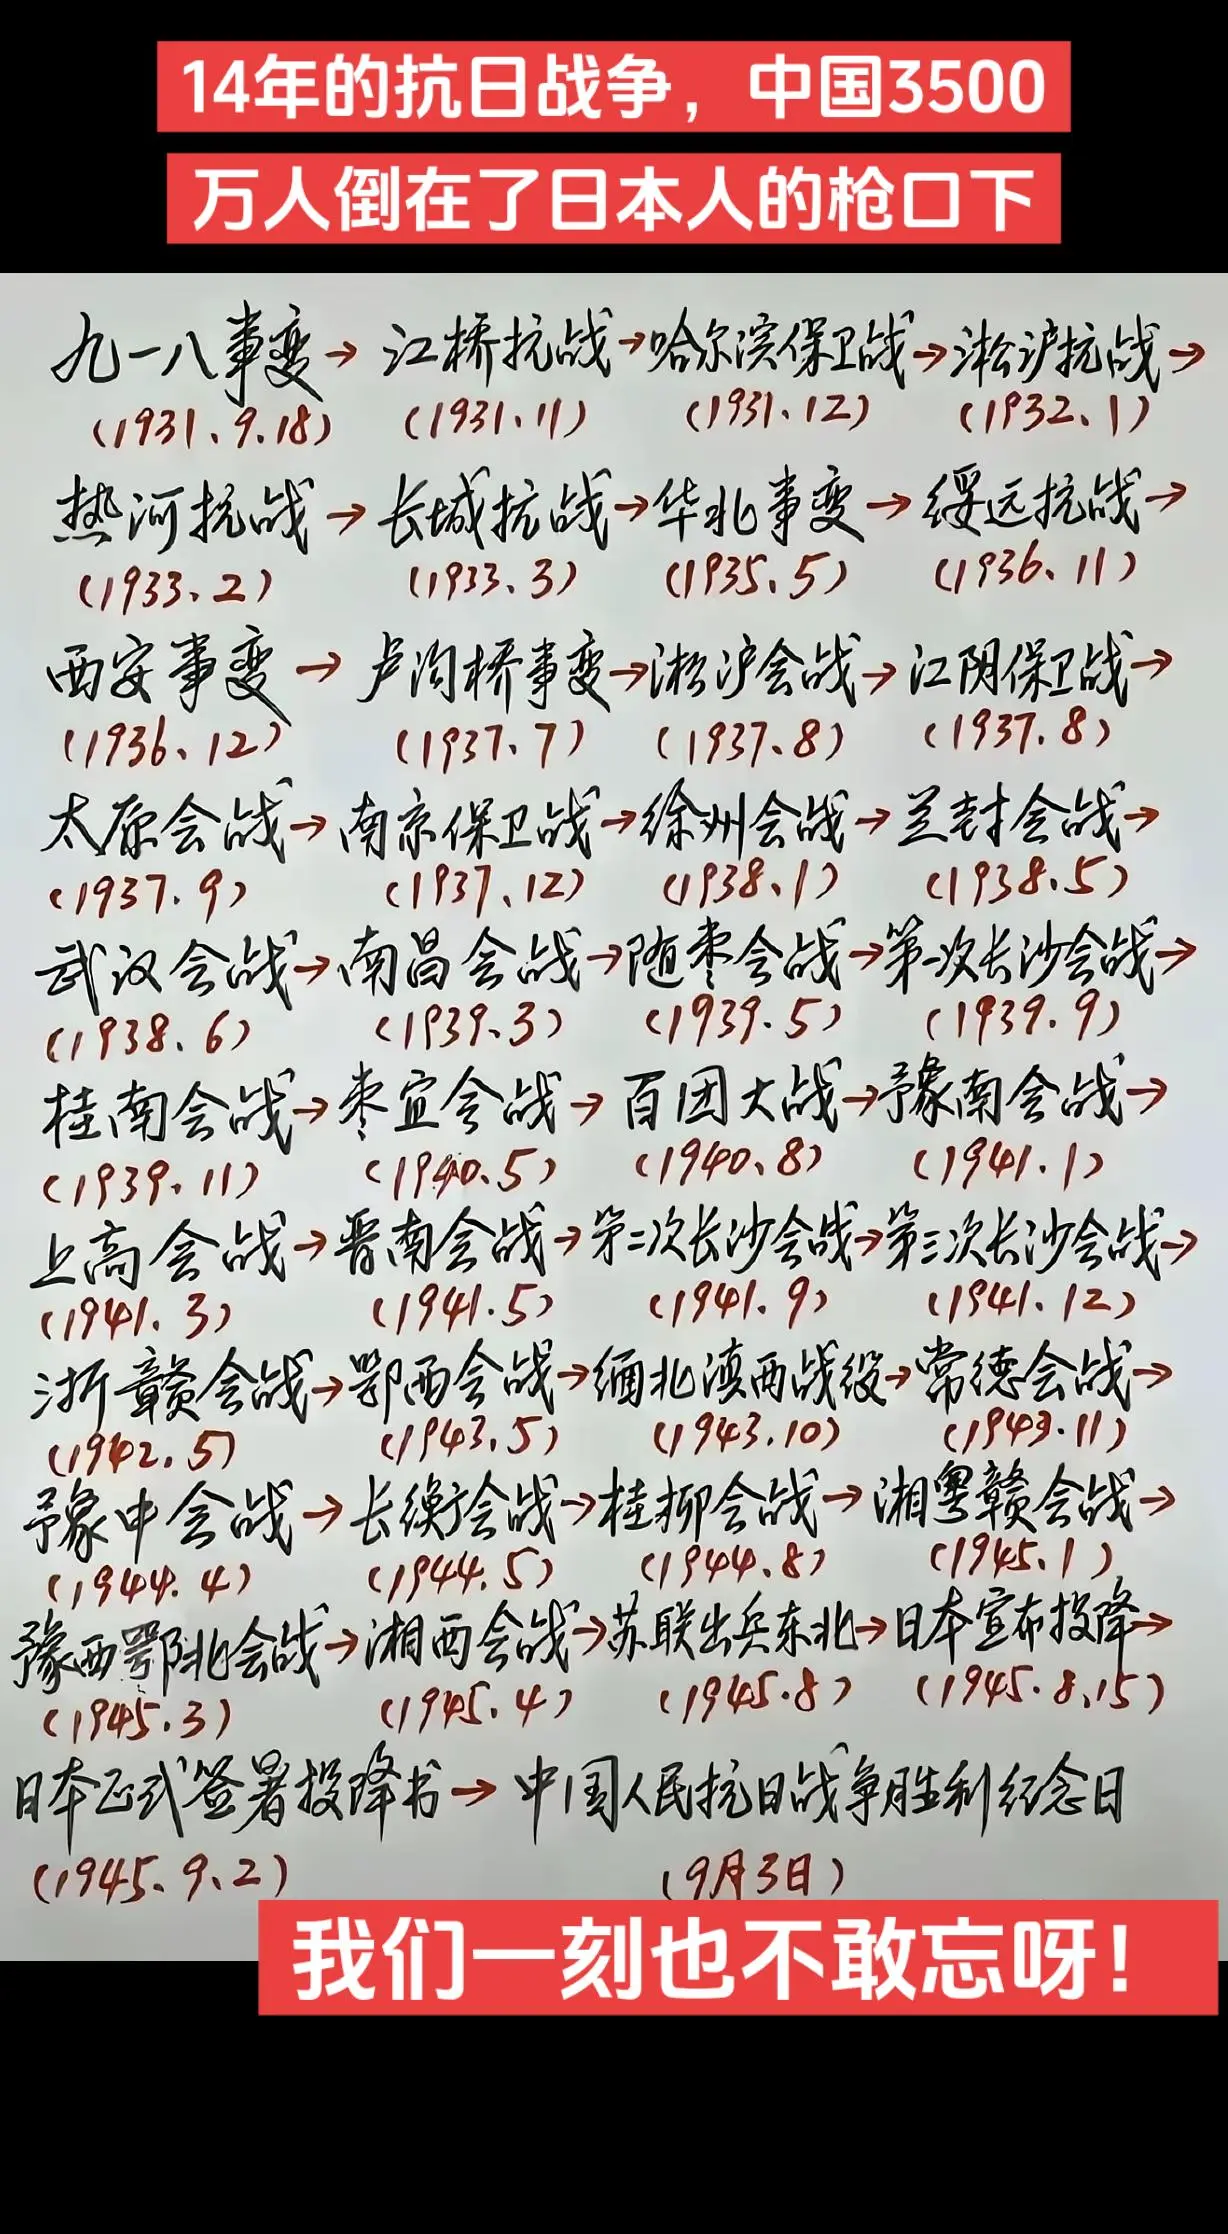 14年的抗日战争，中国3500
万人倒在了日本人的枪口下
九一八事变→江桥抗战→哈尔滨保卫战→淞沪抗战→
(1931.9.18) (1931.11) (1931.12) (1932.1)
热河抗战→长城抗战→华北事变→绥远抗战→
(1933.2) (1933.3) (1935.5) (1936.11)
西安事变→卢沟桥事变→淞沪会战→江阴保卫战→
(1936.12) (1937.7) (1937.8) (1937.8)
太原会战→南京保卫战→徐州会战→兰封会战→
(1937.9) (1937.12) (1938.1) (1938.5)
武汉会战→南昌会战→随枣会战→第一次长沙会战→
(1938.6) (1939.3) (1939.5) (1939.9)
桂南会战→枣宜会战→百团大战→豫南会战→
(1939.11) (1940.5) (1940.8) (1941.1)
上高会战→晋南会战→第二次长沙会战→第三次长沙会战→
(1941.3) (1941.5) (1941.9) (1941.12)
浙赣会战→鄂西会战→缅北滇西战役→常德会战→
(1942.5) (1943.5) (1943.10) (1943.11)
豫中会战→长衡会战→桂柳会战→湘粤赣会战→
(1944.4) (1944.5) (1944.8) (1945.1)
豫西鄂北会战→湘西会战→苏联出兵东北→日本宣布投降→
(1945.3) (1945.4) (1945.8) (1945.8.15)
日本正式签署投降书→中国人民抗日战争胜利纪念日
(1945.9.2) (9月3日)
我们一刻也不敢忘呀！